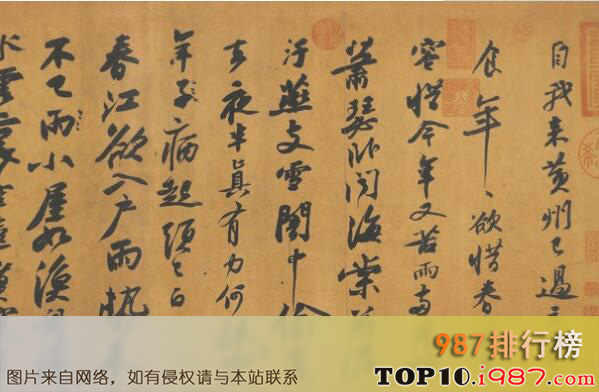 自我来黄州已過
食年〻欲惜春
容惜今年又苦雨兩
蕭瑟卧聞海棠
汙燕支雪闇中偷
去夜半真有力何
年子病起須已白
春江欲入户雨勢
不已雨小屋如漁
水雲裏空庖煮
987排行榜
图片来自网络，如有侵权请与本站联系
TOP10.i987.com